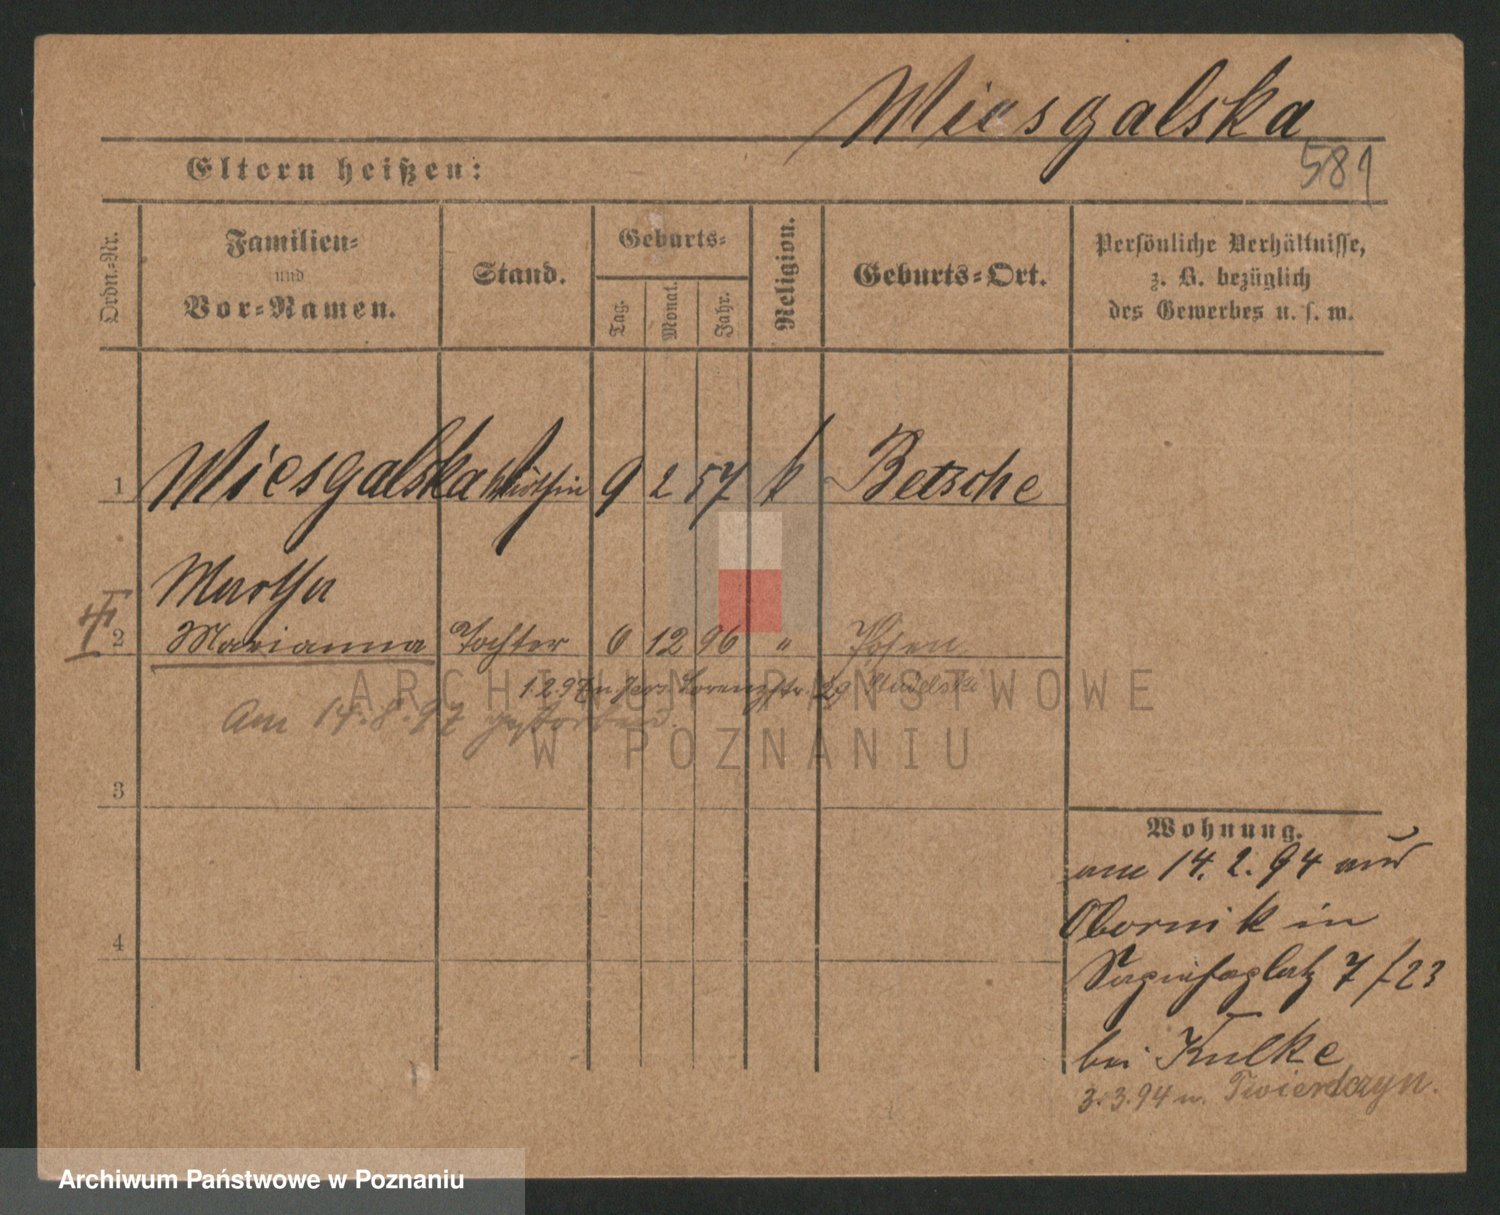 Miesgalska
581
Eltern heißen:
Ordn.-Nr.
Familien-
und
Vor-Namen.
Stand.
Geburts-
Tag.
Monat.
Jahr.
Religion.
Geburts-Ort.
Persönliche Verhältnisse,
z. B. bezüglich
des Gewerbes u. s. w.
1 Miesgalska Köchin 9 2 57 k Betsche
Martha
2 Marianna Tochter 6 12 96 " Posen
1.2.97 n. Jers. Lorenzstr.
Am 14.8.97 gestorben.
3
4
Wohnung.
am 14.2.94 aus
Obornik in
Sapiehaplatz 7 / 23
bei Kulke
3.3.94 n. Twierdczyn.
ARCHIWUM PAŃSTWOWE
W POZNANIU
Archiwum Państwowe w Poznaniu